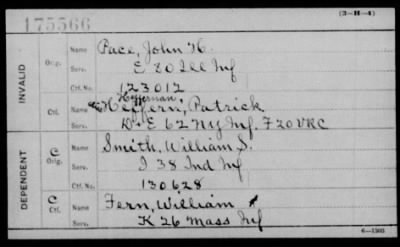 175566
(3-H-4)
INVALID
Orig.
Name Pace, John H.
Serv. E 80 Ill Inf
Ctf. No. 123012
Heffernan
Ctf.
Name Heffern, Patrick
Serv. D+E 62 NY Inf. F20VRC
DEPENDENT
C
Orig.
Name Smith, William S.
Serv. I 38 Ind Inf
Ctf. No. 130628
C
Ctf.
Name Fern, William
Serv. K 26 Mass Inf